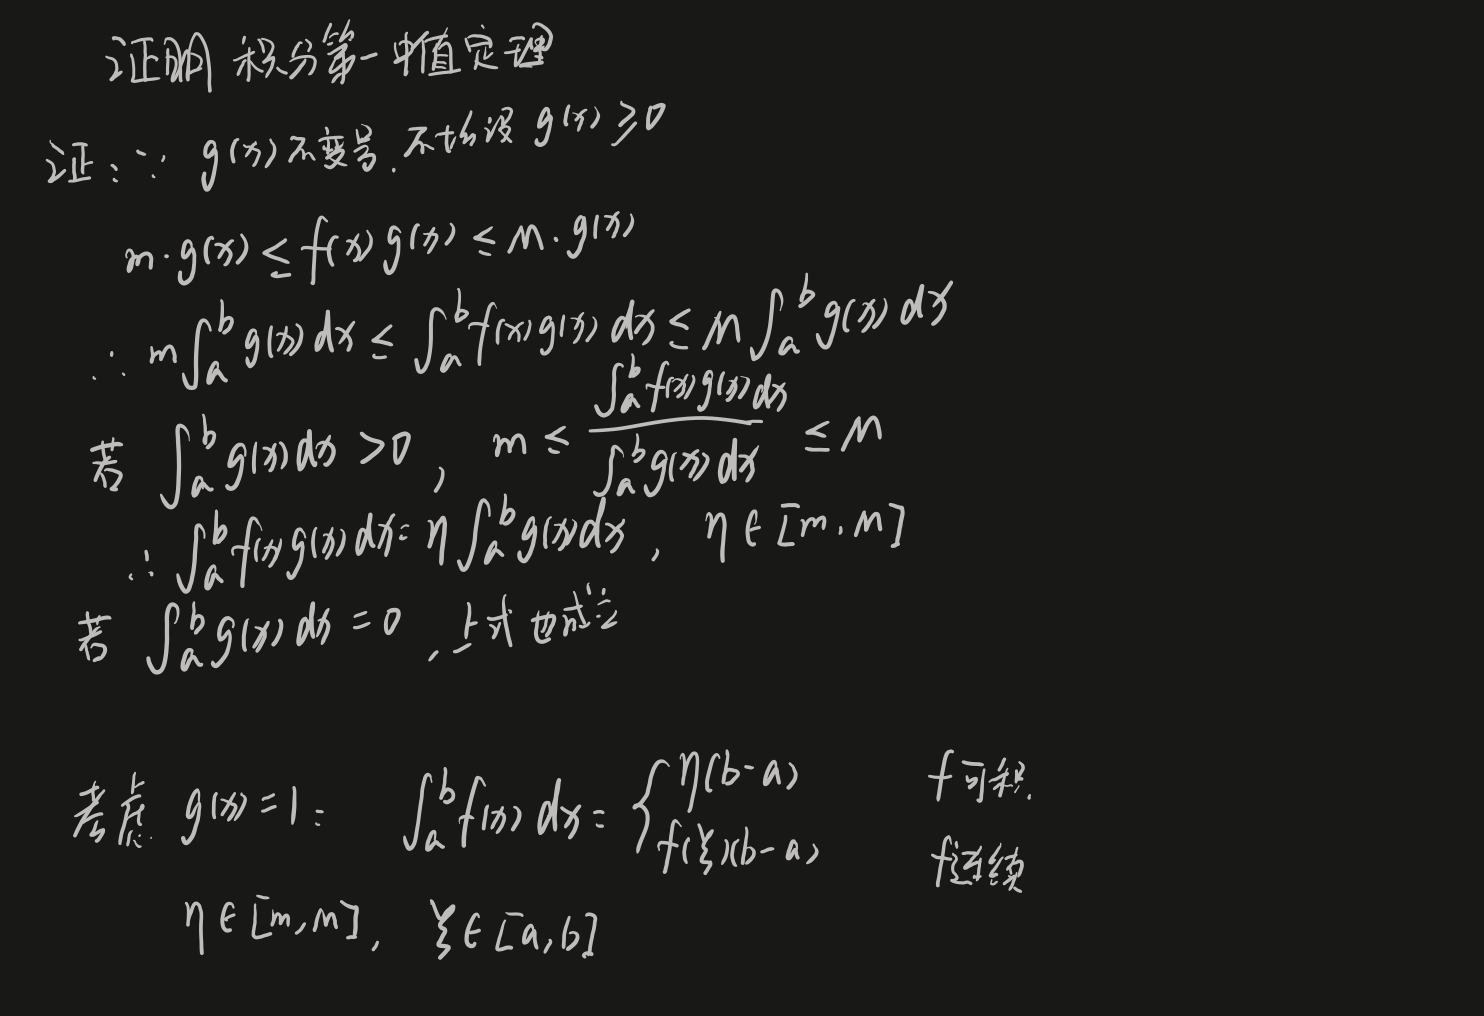 证明 积分第一中值定理
证：∵ g(x) 不变号. 不妨设 g(x) ≥ 0
m·g(x) ≤ f(x) g(x) ≤ M·g(x)
∴ m∫_a^b g(x) dx ≤ ∫_a^b f(x) g(x) dx ≤ M∫_a^b g(x) dx
若 ∫_a^b g(x) dx > 0 , m ≤ (∫_a^b f(x) g(x) dx)/(∫_a^b g(x) dx) ≤ M
∴ ∫_a^b f(x) g(x) dx = η∫_a^b g(x) dx , η ∈ [m, M]
若 ∫_a^b g(x) dx = 0 , 上式也成立
考虑 g(x) = 1 : ∫_a^b f(x) dx = { η(b-a) f 可积.
f(ξ)(b-a) f连续
η ∈ [m, M] , ξ ∈ [a, b]